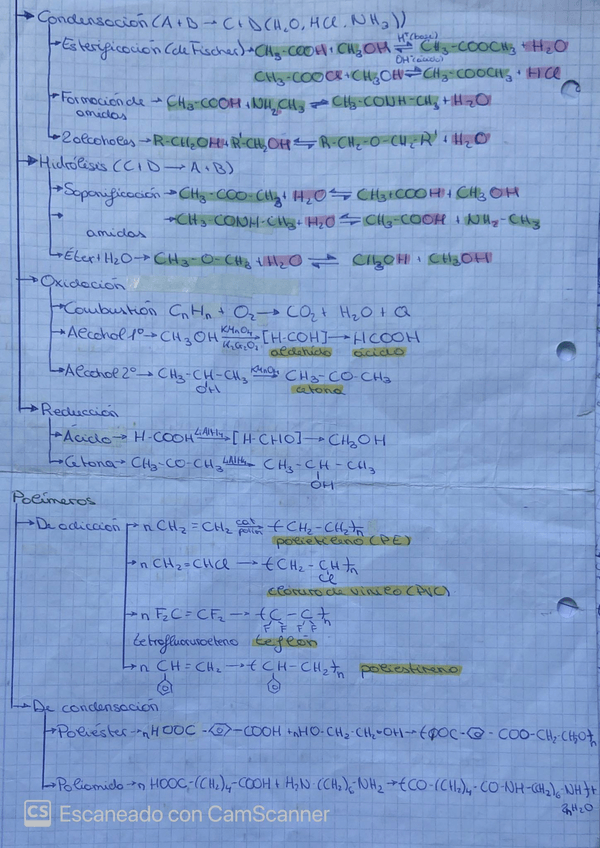 Condensación (A + B → C + D (H₂O, HCl, NH₃))
Esterificación (de Fischer) → CH₃-COOH + CH₃OH ⇌ CH₃-COOCH₃ + H₂O
H⁺ (base)
OH⁻ (ácido)
CH₃-COOCl + CH₃OH ⇌ CH₃-COOCH₃ + HCl
Formación de → CH₃-COOH + NH₂CH₃ ⇌ CH₃-CONH-CH₃ + H₂O
amidas
2 alcoholes → R-CH₂OH + R'-CH₂OH ⇌ R-CH₂-O-CH₂-R' + H₂O
Hidrólisis (C + D → A + B)
Saponificación → CH₃-COO-CH₃ + H₂O ⇌ CH₃-COOH + CH₃OH
→ CH₃-CONH-CH₃ + H₂O ⇌ CH₃-COOH + NH₂-CH₃
amidas
Éter + H₂O → CH₃-O-CH₃ + H₂O ⇌ CH₃OH + CH₃OH
Oxidación
Combustión CₙHₙ + O₂ → CO₂ + H₂O + Q
Alcohol 1º → CH₃OH KMnO₄ K₂Cr₂O₇ → [H-COH] → HCOOH
aldehído ácido
Alcohol 2º → CH₃-CH-CH₃ KMnO₄ → CH₃-CO-CH₃
OH cetona
Reducción
Ácido → H-COOH LiAlH₄ → [H-CHO] → CH₃OH
Cetona → CH₃-CO-CH₃ LiAlH₄ → CH₃-CH-CH₃
OH
Polímeros
De adicción → n CH₂=CH₂ cat polim → (CH₂-CH₂)ₙ
polietileno (PE)
n CH₂=CHCl → (CH₂-CH)ₙ
Cl
cloruro de vinilo (PVC)
n F₂C=CF₂ → (C-C)ₙ
F F F F
tetrofluoruroeteno teflón
n CH=CH₂ → (CH-CH₂)ₙ poliestireno
De condensación
Poliéster → n HOOC-⌬-COOH + n HO-CH₂-CH₂-OH → (OOC-⌬-COO-CH₂-CH₂O)ₙ
Poliamida → n HOOC-(CH₂)₄-COOH + H₂N-(CH₂)₆-NH₂ → (CO-(CH₂)₄-CO-NH-(CH₂)₆-NH)+
2n H₂O
CS Escaneado con CamScanner